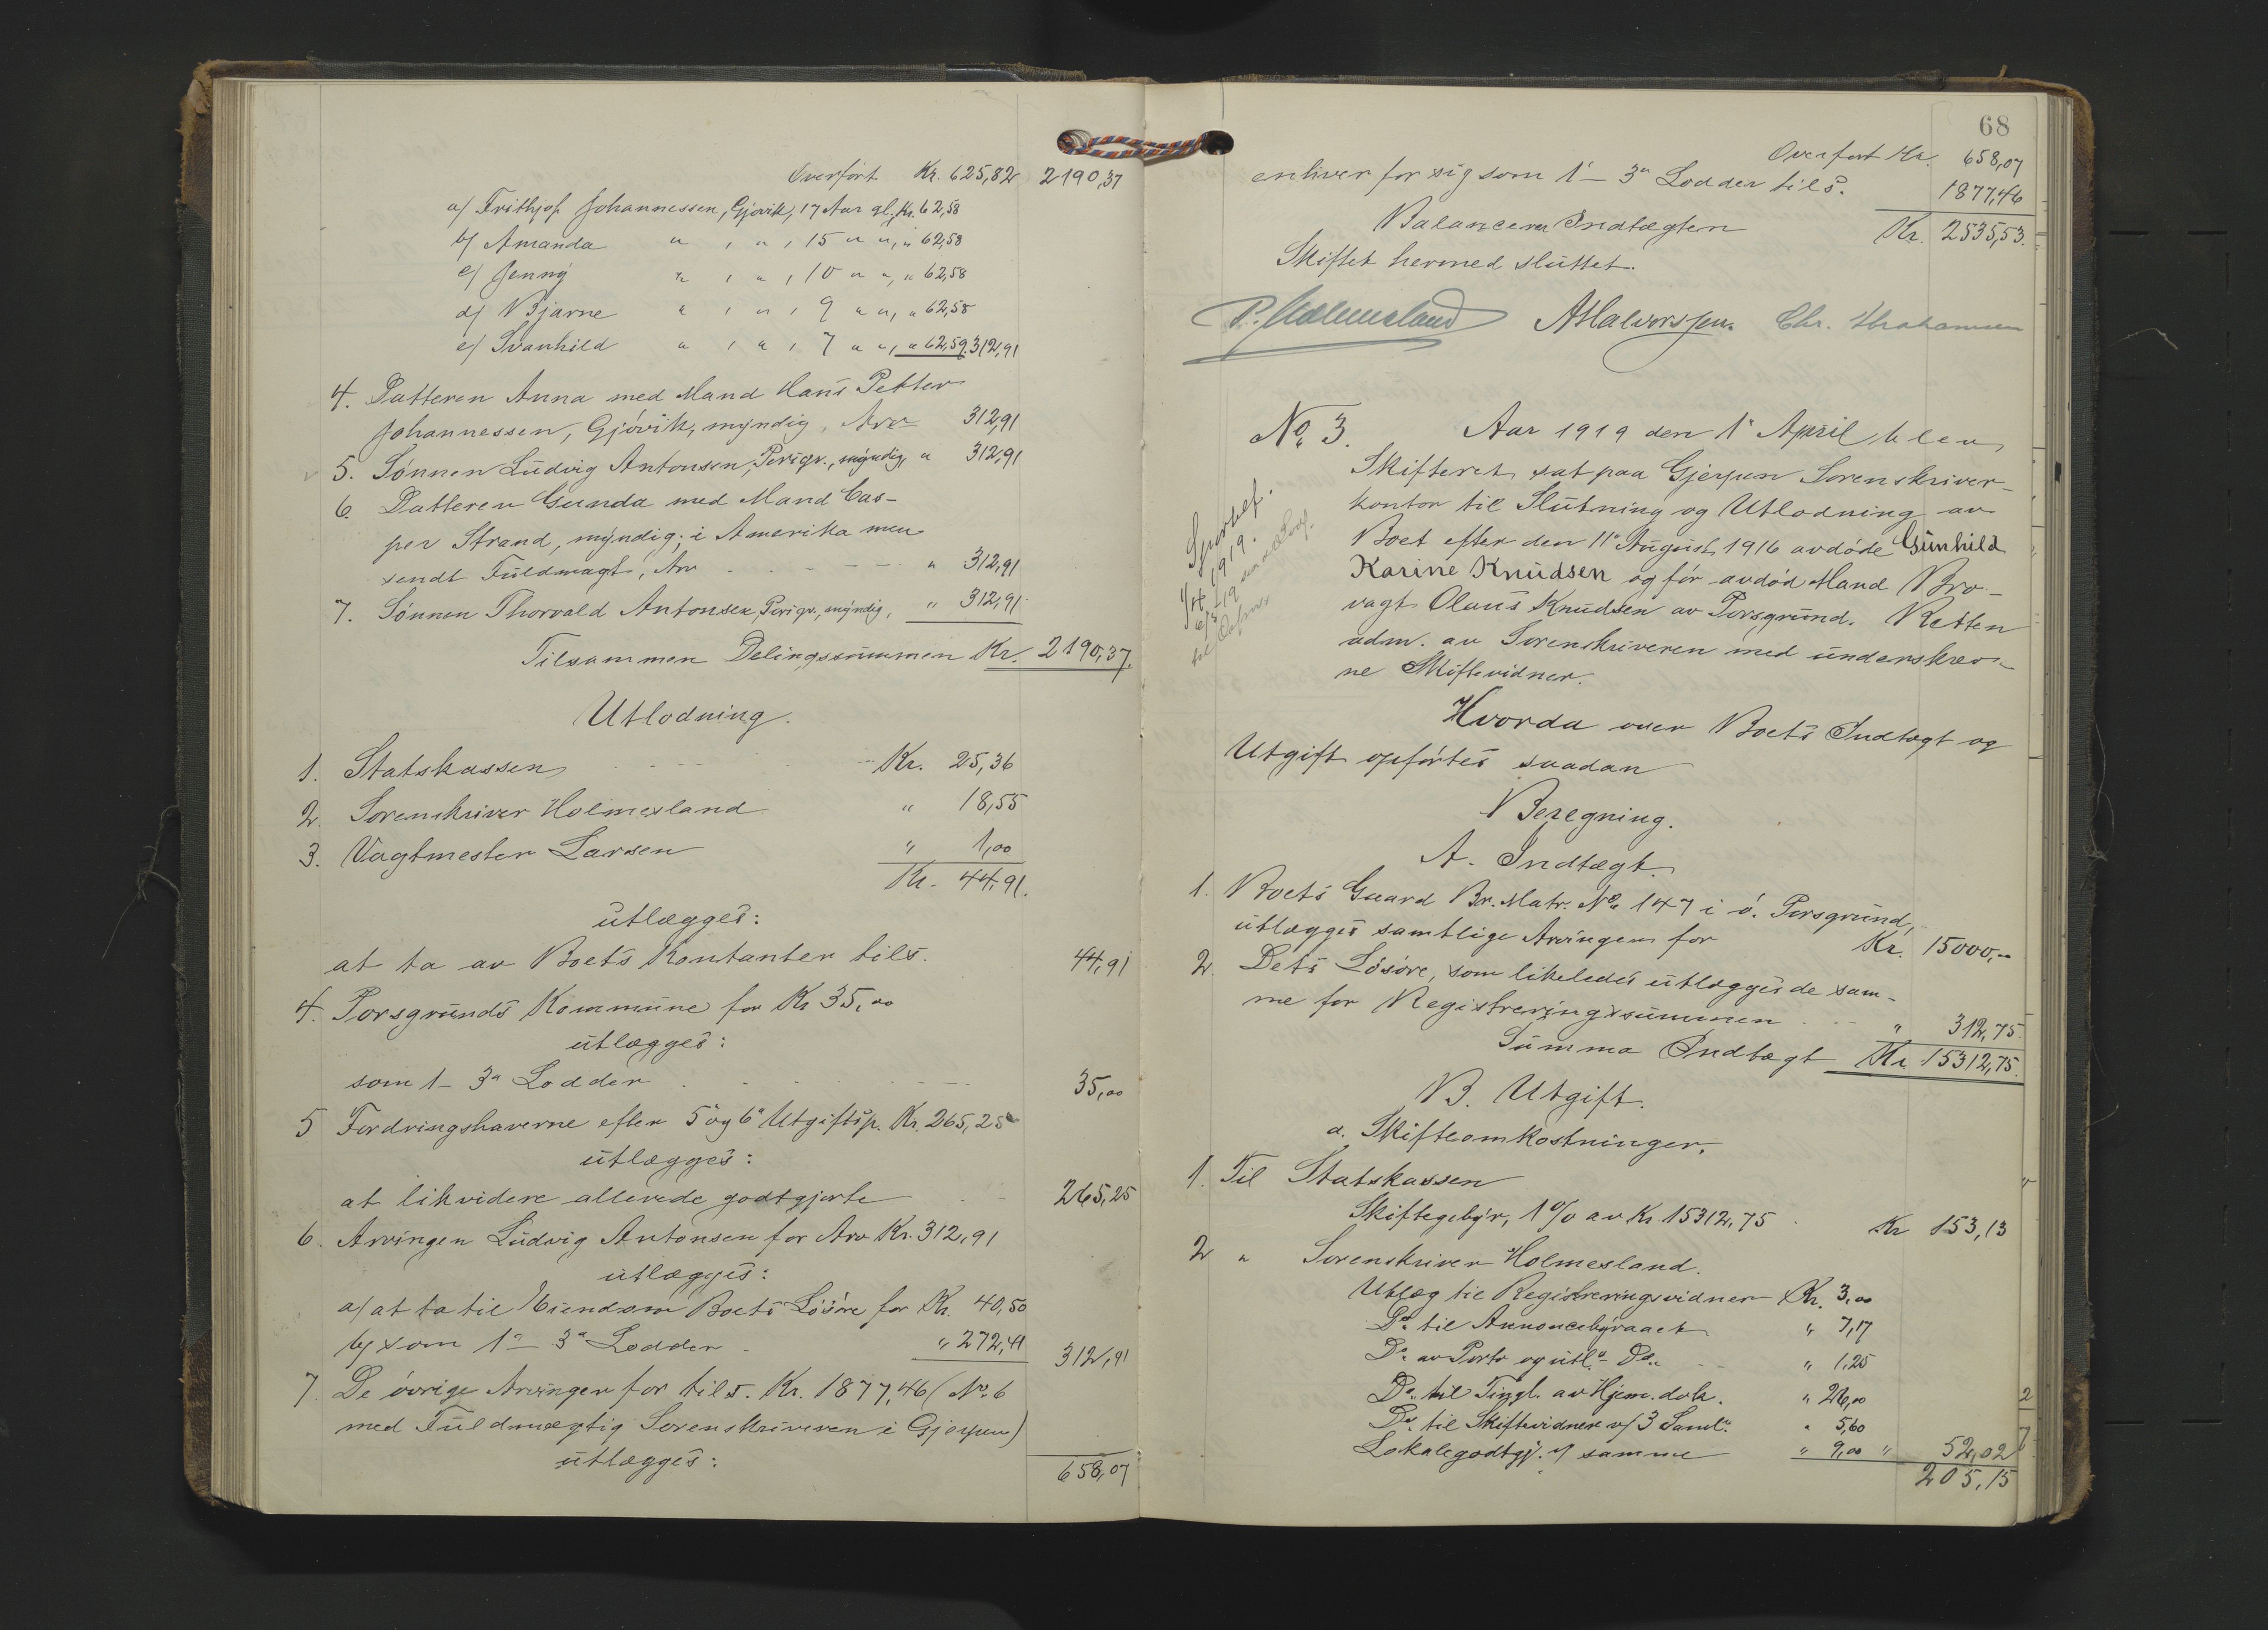 Overført Kr. 625,82 2190,37
a/ Frithjof Johannessen, Gjøvik, 17 Aar gl., Kr. 62,58
b/ Amanda " , " , 15 " ", " 62,58
c/ Jenny " , " , 10 " ", " 62,58
d/ Bjarne " , " , 9 " ", " 62,58
e/ Svanhild " , " , 7 " ", " 62,59. 312,91
4. Datteren Anna med Mand Hans Petter
Johannessen, Gjøvik, myndig, Arv 312,91
5. Sønnen Ludvig Antonsen, Porsgr., myndig, " 312,91
6. Datteren Gunda med Mand Cas-
per Strand, myndig; i Amerika men
sendt Fuldmagt, Arv " 312,91
7. Sønnen Thorvald Antonsen, Porsgr., myndig, " 312,91
Tilsammen Delingssummen Kr. 2190,37.
Utlodning.
1. Statskassen Kr. 25,36
2. Sorenskriver Holmesland " 18,55
3. Vagtmester Larsen " 1,00
Kr. 44,91.
utlægges:
at ta av Boets Kontanter tils. 44,91
4. Porsgrunds Kommune for Kr 35,00
utlægges:
som 1- 3" Lodder 35,00
5 Fordringshaverne efter 5 og 6" Utgiftsp. Kr. 265,25
utlægges:
at likvidere allerede godtgjorte 265,25
6. Arvingen Ludvig Antonsen for Arv Kr. 312,91
utlægges:
a/ at ta til Eiendom Boets Løsøre for Kr. 40,50
b/ som 1"- 3" Lodder " 272,41 312,91
7. De øvrige Arvinger for tils. Kr. 1877,46 (No. 6
med Fuldmægtig Sorenskriveren i Gjerpen)
utlægges:
658,07
68
Overført Kr. 658,07
enhver for sig som 1"- 3" Lodder tils. 1877,46
Balancerer Indtægten Kr. 2535,53.
Skiftet hermed sluttet.
P. Holmesland A Halvorsen. Chr. Abrahamsen
No. 3. Aar 1919 den 1" April blev
Skifteret sat paa Gjerpen Sorenskriver-
kontor til Slutning og Utlodning av
Boet efter den 11" August 1916 avdøde Gunhild
Karine Knudsen og før avdød Mand Bro-
vagt Olaus Knudsen av Porsgrund. Retten
adm. av Sorenskriveren med underskrev-
ne Skiftevidner.
Hvorda over Boets Indtægt og
Utgift opførtes saadan
Beregning.
A. Indtægt.
1. Boets Gaard Br. Matr. No. 147 i ø. Porsgrund,
utlægges samtlige Arvinger for Kr. 15000,-
2. Dets Løsøre, som likeledes utlægges de sam-
me for Registreringssummen " 312,75.
Summa Indtægt Kr. 15312,75.
B. Utgift.
a. Skifteomkostninger.
1. Til Statskassen
Skiftegebyr, 1% av Kr. 15312,75 Kr 153,13
2 " Sorenskriver Holmesland.
Utlæg til Registreringsvidner Kr. 3,00
Do. til Annoncebyraaet " 7,17
Do. av Porto og utl. Do. " 1,25
Do. til Tingl. av Hjem. dok. " 26,00
Do. til Skiftevidner v/ 3 Saml. " 5,60
Lokalegodtgj. v/ samme " 9,00 " 52,02
205,15